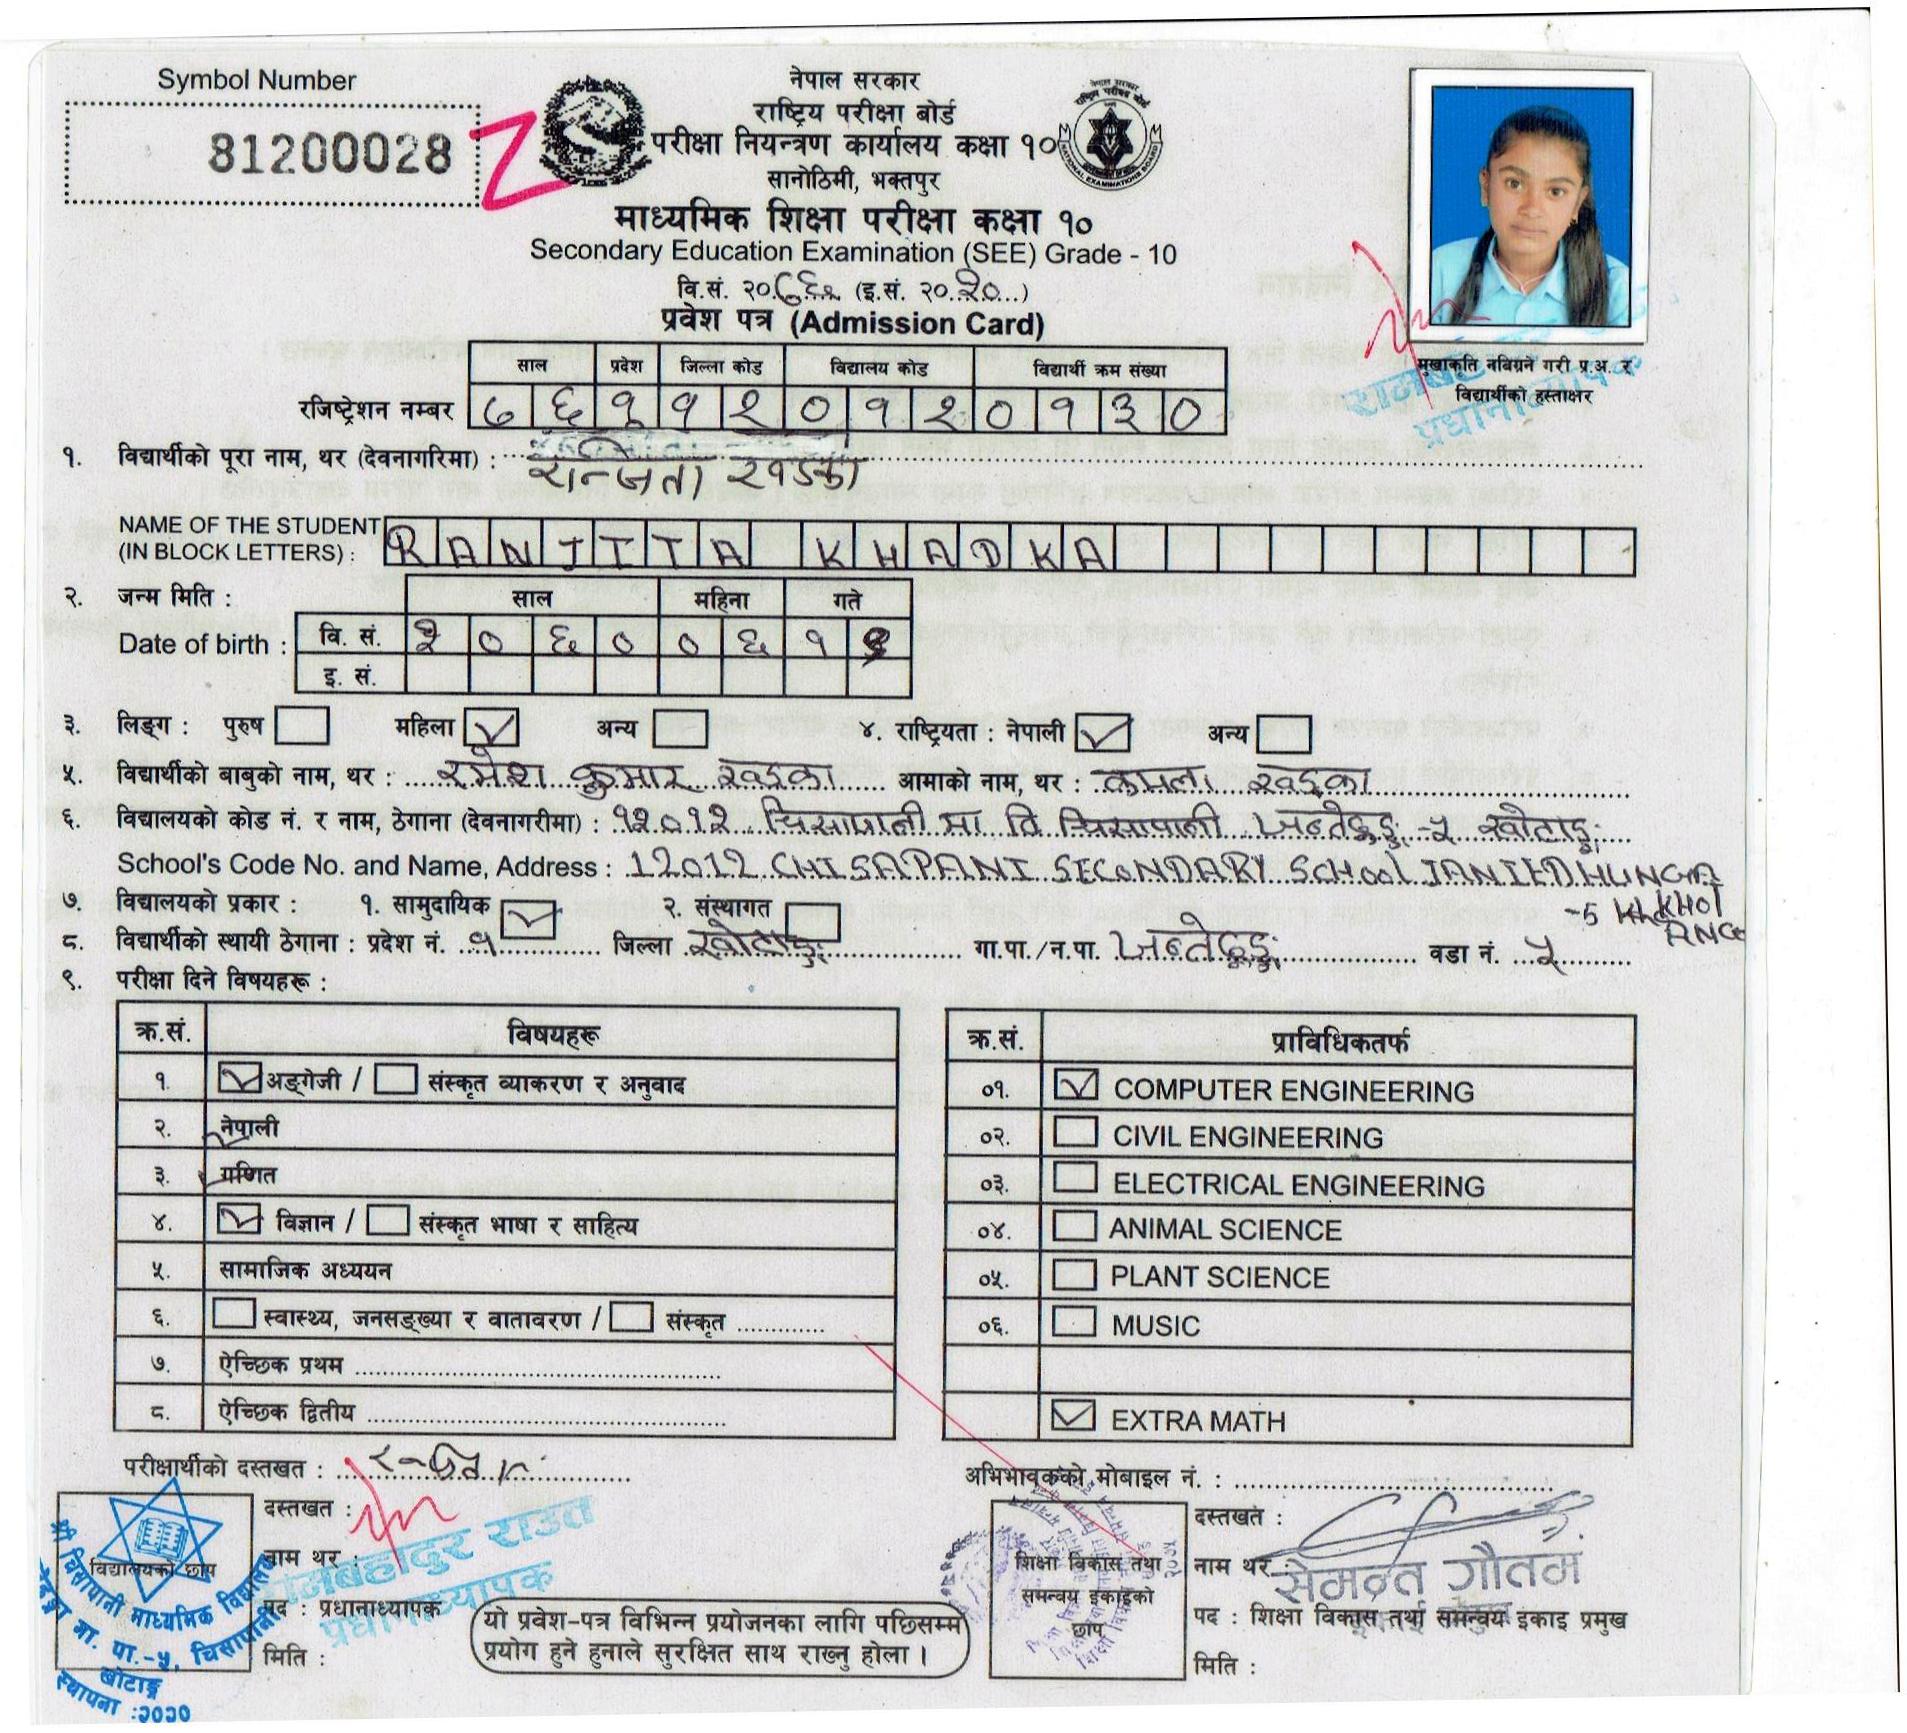 Symbol Number
81200028
नेपाल सरकार
राष्ट्रिय परीक्षा बोर्ड
परीक्षा नियन्त्रण कार्यालय कक्षा १०
सानोठिमी, भक्तपुर
माध्यमिक शिक्षा परीक्षा कक्षा १०
Secondary Education Examination (SEE) Grade - 10
वि.सं. २०७६ (इ.सं. २०२०)
प्रवेश पत्र (Admission Card)
मुखाकृति नबिग्रने गरी प्र.अ. र
विद्यार्थीको हस्ताक्षर
साल प्रदेश जिल्ला कोड विद्यालय कोड विद्यार्थी क्रम संख्या
रजिष्ट्रेशन नम्बर ७ ६ १ १ २ ० १ २ ० १ ३ ०
१. विद्यार्थीको पूरा नाम, थर (देवनागरिमा) : रान्जिता खडका
NAME OF THE STUDENT (IN BLOCK LETTERS) : RANJITA KHADKA
२. जन्म मिति : साल महिना गते
Date of birth : वि. सं. २ ० ६ ० ० ६ १
इ. सं.
३. लिङ्ग : पुरुष महिला ✓ अन्य ४. राष्ट्रियता : नेपाली ✓ अन्य
५. विद्यार्थीको बाबुको नाम, थर : रमेश कुमार खड्का आमाको नाम, थर : कमला खड्का
६. विद्यालयको कोड नं. र नाम, ठेगाना (देवनागरीमा) : १२०१२ चिसापानी मा वि चिसापानी जन्तेढुङ्गा -५ खोटाङ
School's Code No. and Name, Address : 12012 CHISAPANI SECONDARY SCHOOL JANTEDHUNGA
-5
७. विद्यालयको प्रकार : १. सामुदायिक ✓ २. संस्थागत
८. विद्यार्थीको स्थायी ठेगाना : प्रदेश नं. १ जिल्ला खोटाङ गा.पा./न.पा. जन्तेढुङ्गा वडा नं. ५
९. परीक्षा दिने विषयहरू :
क्र.सं. विषयहरू
१. ✓ अङ्ग्रेजी / संस्कृत व्याकरण र अनुवाद
२. नेपाली
३. गणित
४. ✓ विज्ञान / संस्कृत भाषा र साहित्य
५. सामाजिक अध्ययन
६. स्वास्थ्य, जनसङ्ख्या र वातावरण / संस्कृत
७. ऐच्छिक प्रथम
८. ऐच्छिक द्वितीय
क्र.सं. प्राविधिकतर्फ
०१. ✓ COMPUTER ENGINEERING
०२. CIVIL ENGINEERING
०३. ELECTRICAL ENGINEERING
०४. ANIMAL SCIENCE
०५. PLANT SCIENCE
०६. MUSIC
✓ EXTRA MATH
परीक्षार्थीको दस्तखत :
अभिभावकको मोबाइल नं. :
विद्यालयको छाप
श्री चिसापानी माध्यमिक विद्यालय
गा. पा.-५, चिसापानी
खोटाङ्ग
स्थापना :२०२०
दस्तखत :
नाम थर : रामबहादुर राउत
पद : प्रधानाध्यापक
प्रधानाध्यापक
मिति :
यो प्रवेश-पत्र विभिन्न प्रयोजनका लागि पछिसम्म
प्रयोग हुने हुनाले सुरक्षित साथ राख्नु होला ।
शिक्षा विकास तथा
समन्वय इकाइको
छाप
दस्तखत :
नाम थर : सेमन्त गौतम
पद : शिक्षा विकास तथा समन्वय इकाइ प्रमुख
मिति :